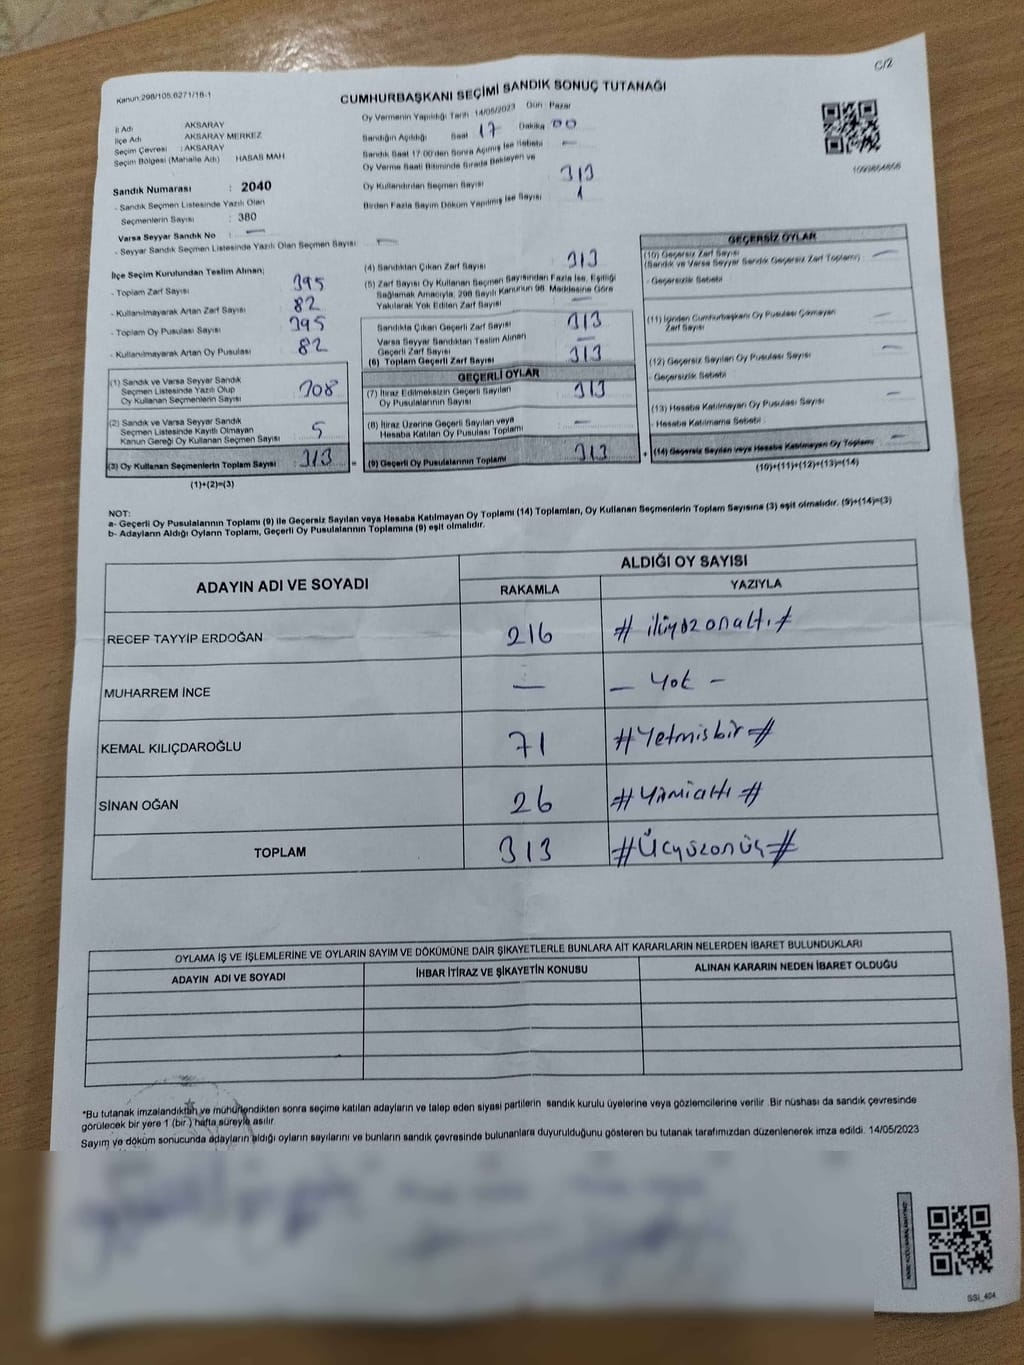 C/2
Kanun:298/105,6271/18-1
CUMHURBAŞKANI SEÇİMİ SANDIK SONUÇ TUTANAĞI
İl Adı AKSARAY
İlçe Adı AKSARAY MERKEZ
Seçim Çevresi : AKSARAY
Seçim Bölgesi (Mahalle Adı) HASAS MAH
Sandık Numarası : 2040
- Sandık Seçmen Listesinde Yazılı Olan
Seçmenlerin Sayısı : 380
Varsa Seyyar Sandık No : —
- Seyyar Sandık Seçmen Listesinde Yazılı Olan Seçmen Sayısı : —
Oy Vermenin Yapıldığı Tarih 14/05/2023 Gün : Pazar
Sandığın Açıldığı Saat 17 Dakika 00
Sandık Saat 17:00'den Sonra Açılmış İse Sebebi : —
Oy Verme Saati Bitiminde Sırada Bekleyen ve
Oy Kullandırılan Seçmen Sayısı 313
Birden Fazla Sayım Döküm Yapılmış İse Sayısı : 1
1099864656
İlçe Seçim Kurulundan Teslim Alınan;
- Toplam Zarf Sayısı 395
- Kullanılmayarak Artan Zarf Sayısı 82
- Toplam Oy Pusulası Sayısı 395
- Kullanılmayarak Artan Oy Pusulası 82
(1) Sandık ve Varsa Seyyar Sandık
Seçmen Listesinde Yazılı Olup
Oy Kullanan Seçmenlerin Sayısı 308
(2) Sandık ve Varsa Seyyar Sandık
Seçmen Listesinde Kayıtlı Olmayan
Kanun Gereği Oy Kullanan Seçmen Sayısı 5
(3) Oy Kullanan Seçmenlerin Toplam Sayısı : 313
(1)+(2)=(3)
(4) Sandıktan Çıkan Zarf Sayısı 313
(5) Zarf Sayısı Oy Kullanan Seçmen Sayısından Fazla İse, Eşitliği
Sağlamak Amacıyla, 298 Sayılı Kanunun 98. Maddesine Göre
Yakılarak Yok Edilen Zarf Sayısı —
Sandıkta Çıkan Geçerli Zarf Sayısı 313
Varsa Seyyar Sandıktan Teslim Alınan
Geçerli Zarf Sayısı —
(6) Toplam Geçerli Zarf Sayısı 313
GEÇERLİ OYLAR
(7) İtiraz Edilmeksizin Geçerli Sayılan
Oy Pusulalarının Sayısı 313
(8) İtiraz Üzerine Geçerli Sayılan veya
Hesaba Katılan Oy Pusulası Toplamı —
= (9) Geçerli Oy Pusulalarının Toplamı 313
GEÇERSİZ OYLAR
(10) Geçersiz Zarf Sayısı —
(Sandık ve Varsa Seyyar Sandık Geçersiz Zarf Toplamı)
- Geçersizlik Sebebi
(11) İçinden Cumhurbaşkanı Oy Pusulası Çıkmayan
Zarf Sayısı —
(12) Geçersiz Sayılan Oy Pusulası Sayısı —
- Geçersizlik Sebebi
(13) Hesaba Katılmayan Oy Pusulası Sayısı —
- Hesaba Katılmama Sebebi
+ (14) Geçersiz Sayılan veya Hesaba Katılmayan Oy Toplamı —
(10)+(11)+(12)+(13)=(14)
NOT:
a- Geçerli Oy Pusulalarının Toplamı (9) ile Geçersiz Sayılan veya Hesaba Katılmayan Oy Toplamı (14) Toplamları, Oy Kullanan Seçmenlerin Toplam Sayısına (3) eşit olmalıdır. (9)+(14)=(3)
b- Adayların Aldığı Oyların Toplamı, Geçerli Oy Pusulalarının Toplamına (9) eşit olmalıdır.
ADAYIN ADI VE SOYADI ALDIĞI OY SAYISI
RAKAMLA YAZIYLA
RECEP TAYYİP ERDOĞAN 216 # ikiyüzonaltı #
MUHARREM İNCE — — Yok —
KEMAL KILIÇDAROĞLU 71 # Yetmişbir #
SİNAN OĞAN 26 # Yirmialtı #
TOPLAM 313 # Üçyüzonüç #
OYLAMA İŞ VE İŞLEMLERİNE VE OYLARIN SAYIM VE DÖKÜMÜNE DAİR ŞİKAYETLERLE BUNLARA AİT KARARLARIN NELERDEN İBARET BULUNDUKLARI
ADAYIN ADI VE SOYADI İHBAR İTİRAZ VE ŞİKAYETİN KONUSU ALINAN KARARIN NEDEN İBARET OLDUĞU
*Bu tutanak imzalandıktan ve mühürlendikten sonra seçime katılan adayların ve talep eden siyasi partilerin sandık kurulu üyelerine veya gözlemcilerine verilir .Bir nüshası da sandık çevresinde
görülecek bir yere 1 (bir ) hafta süreyle asılır.
Sayım ve döküm sonucunda adayların aldığı oyların sayılarını ve bunların sandık çevresinde bulunanlara duyurulduğunu gösteren bu tutanak tarafımızdan düzenlenerek imza edildi. 14/05/2023
SSI_404